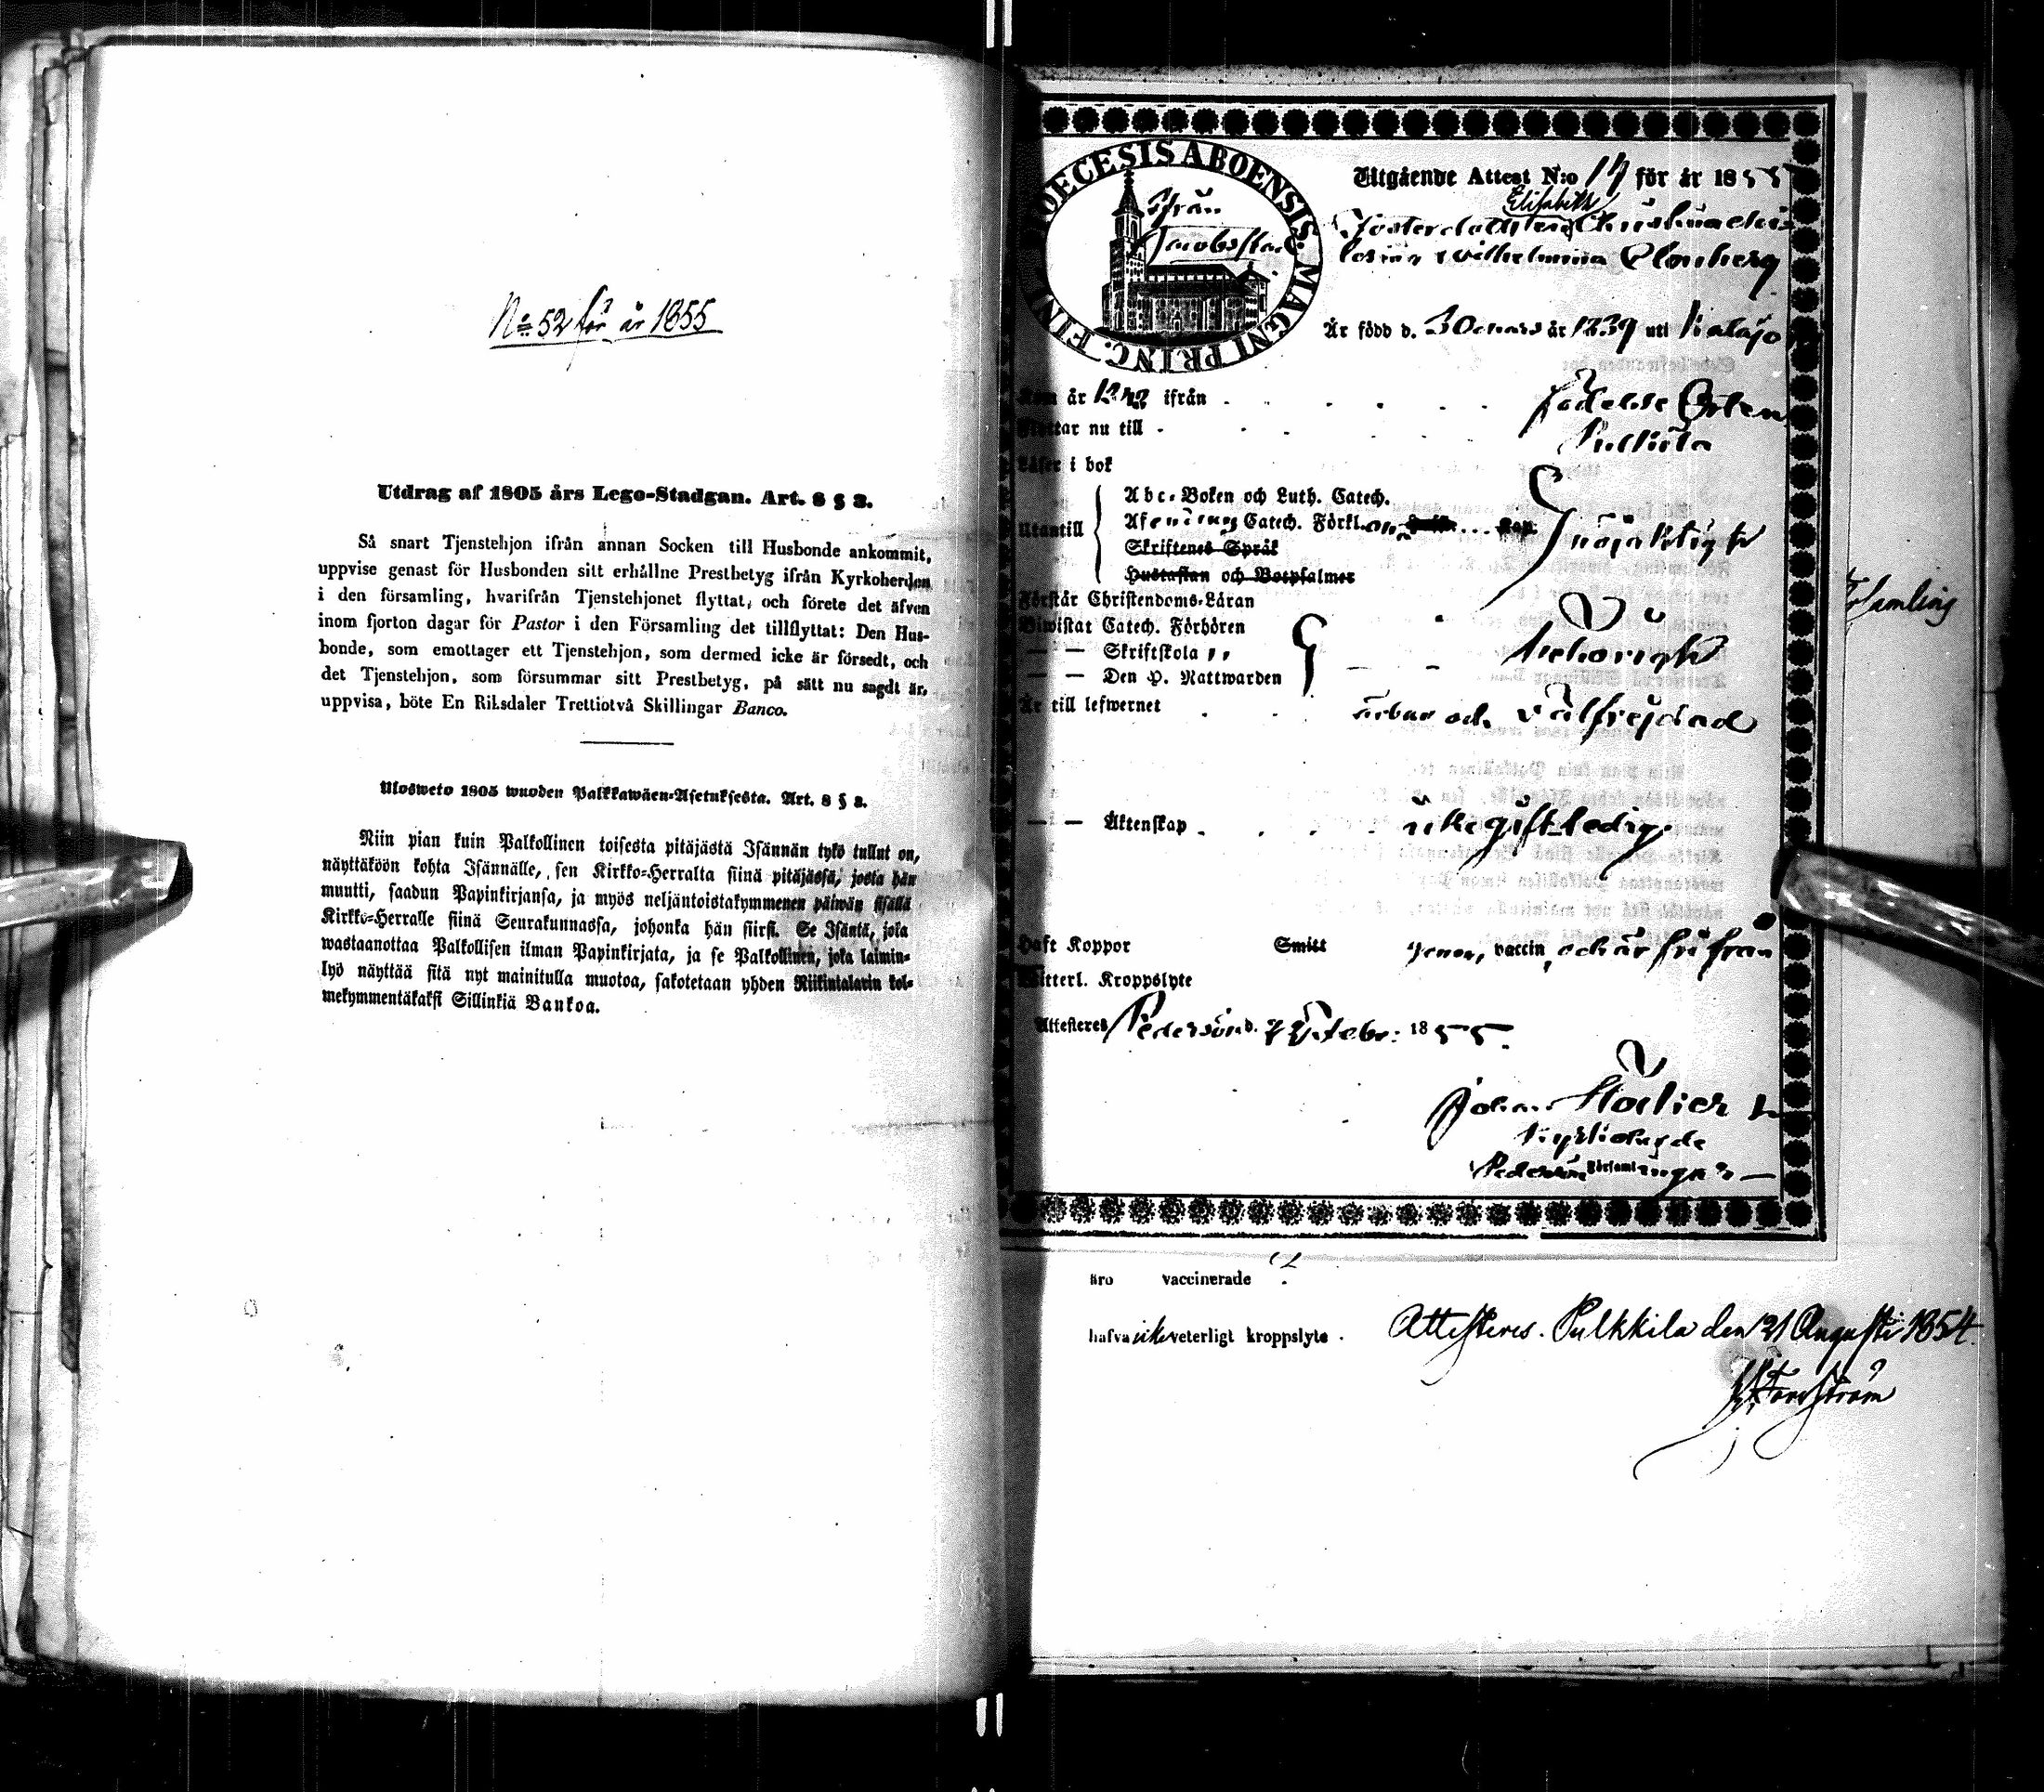 No 52 för år 1855
Utdrag af 1805 års Lego-Stadgan. Art. 8 § 3.
Så snart Tjenstehjon ifrån annan Socken till Husbonde ankommit,
uppvise genast för Husbonden sitt erhållne Prestbetyg ifrån Kyrkoherden
i den församling, hvarifrån Tjenstehjonet flyttat, och förete det äfven
inom fjorton dagar för Pastor i den Församling det tillflyttat: Den Hus-
bonde, som emottager ett Tjenstehjon, som dermed icke är försedt, och
det Tjenstehjon, som försummar sitt Prestbetyg, på sätt nu sagdt är,
uppvisa, böte En Riksdaler Trettiotvå Skillingar Banco.
Ulosweto 1805 wuoden Palkkawäen-Asetuksesta. Art. 8 § 3.
Niin pian kuin Palkollinen toisesta pitäjästä Isännän tykö tullut on,
näyttäköön kohta Isännälle, sen Kirkko-Herralta siinä pitäjässä, josta hän
muutti, saadun Papinkirjansa, ja myös neljäntoistakymmenen päiwän sisällä
Kirkko-Herralle siinä Seurakunnassa, johonka hän siirsi. Se Isäntä, joka
wastaanottaa Palkollisen ilman Papinkirjata, ja se Palkollinen, joka laimin-
lyö näyttää sitä nyt mainitulla muotoa, sakotetaan yhden Riikintalarin kol-
mekymmentäkaksi Sillinkiä Bankoa.
DIOECESIS ABOENSIS. MAGNI PRINC. FINL.
ifrån
Jacobstad
Utgående Attest N:o 17 för år 1855
Elisabeth
Fosterdottren
Wilhelmina
Är född d. 30 mars år 1839 uti Kalajo
Kom år ifrån . . . . . . födelse Orten
Flyttar nu till . . . . . Pulkila
Läser i bok
Utantill
Abc-Boken och Luth. Catech.
Af Catech. Förkl.
Skriftenes Språk
Hustaflan och Botpsalmer
nöjaktigt
Förstår Christendoms-Läran
Biwistat Catech. Förhören
— — Skriftskola ,,
— — Den H. Nattwarden
behörigt
Är till lefwernet . . ärbar och välfrejdad
— — Äktenskap . . . . icke gift ledig.
Haft Koppor Smitt genom vaccin, och är fri från
Witterl. Kroppslyte
Attesteres Pedersöre d. 7 Octobr: 1855.
Johan
Kyrkoherde
Pedersöre Församlingen
Församling
äro vaccinerade
hafva icke veterligt kroppslyte . Attesteres. Pulkkila den 21 Augusti 1854.